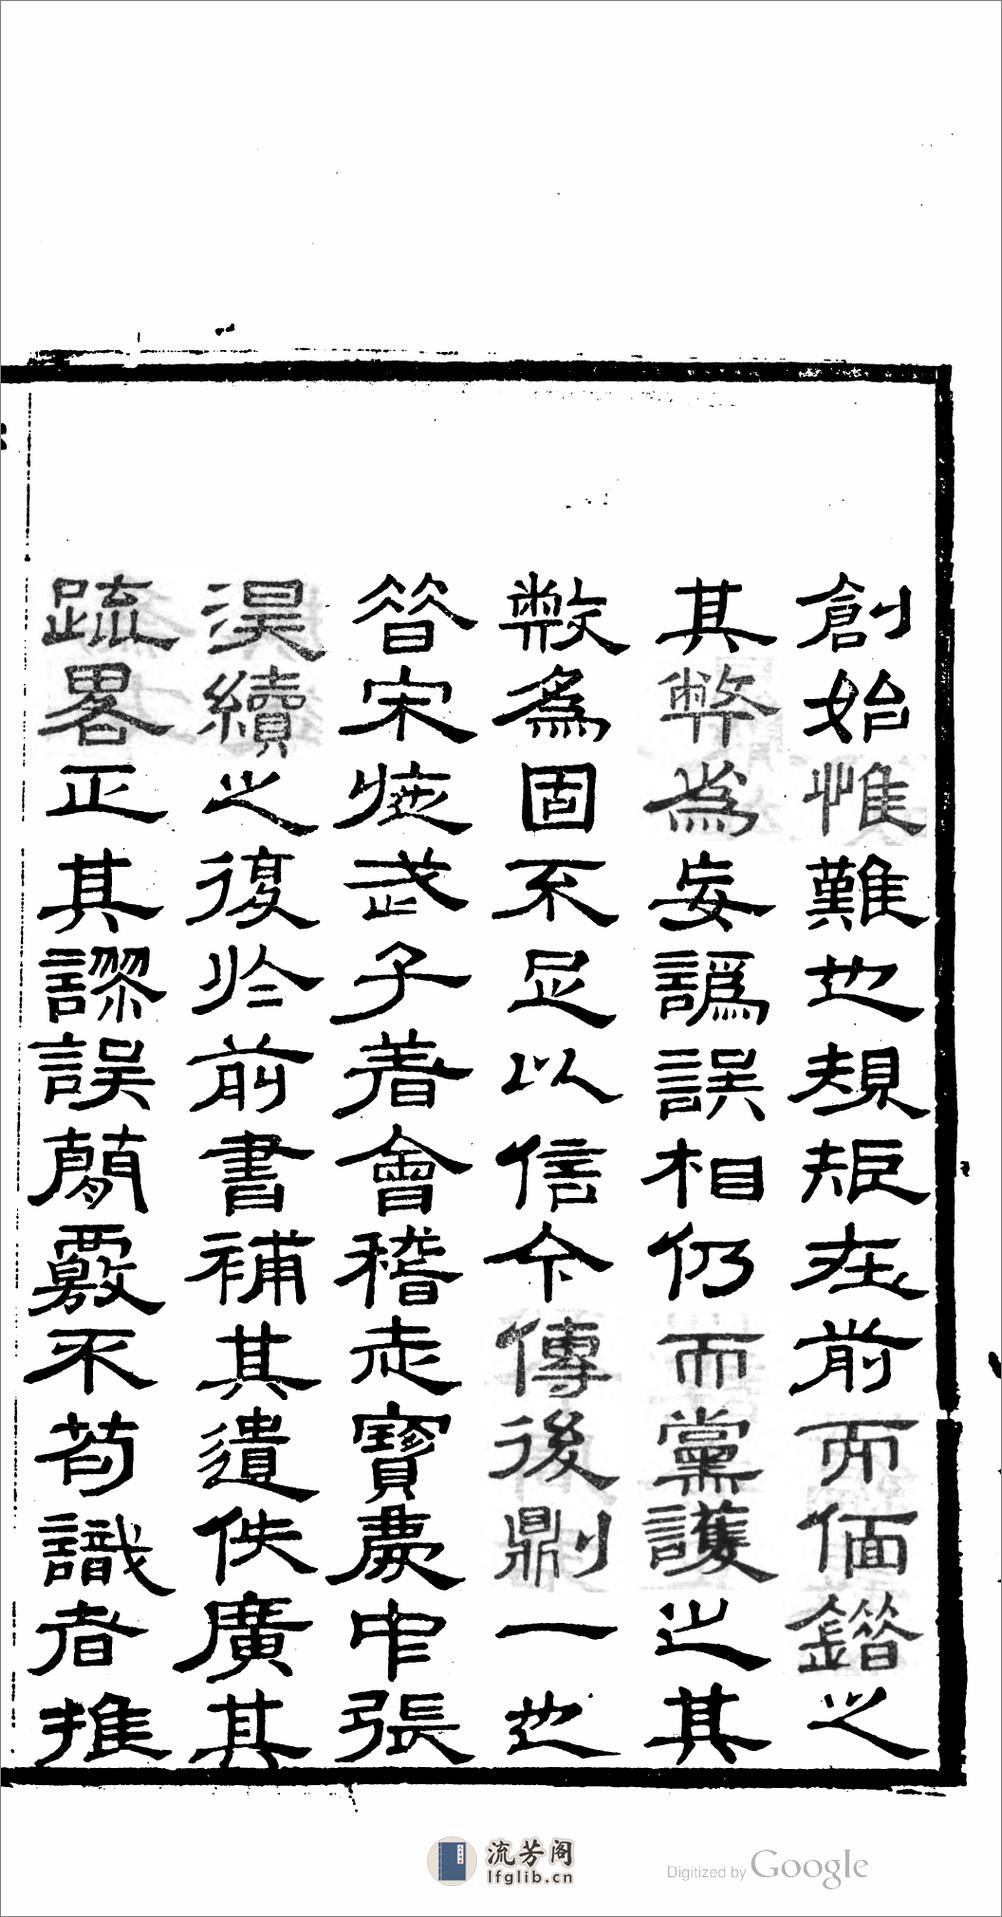 創始惟難也規矩在前而偭鐕之
其弊為妄譌誤相仍而黨護之其
敝為固不足以信今傳後劘一也
晉宋施武子著會稽志寶慶中張
淏續之復於前書補其遺佚廣其
疏畧正其謬誤簡覈不苟識者推
流芳阁
lfglib.cn
Digitized by Google